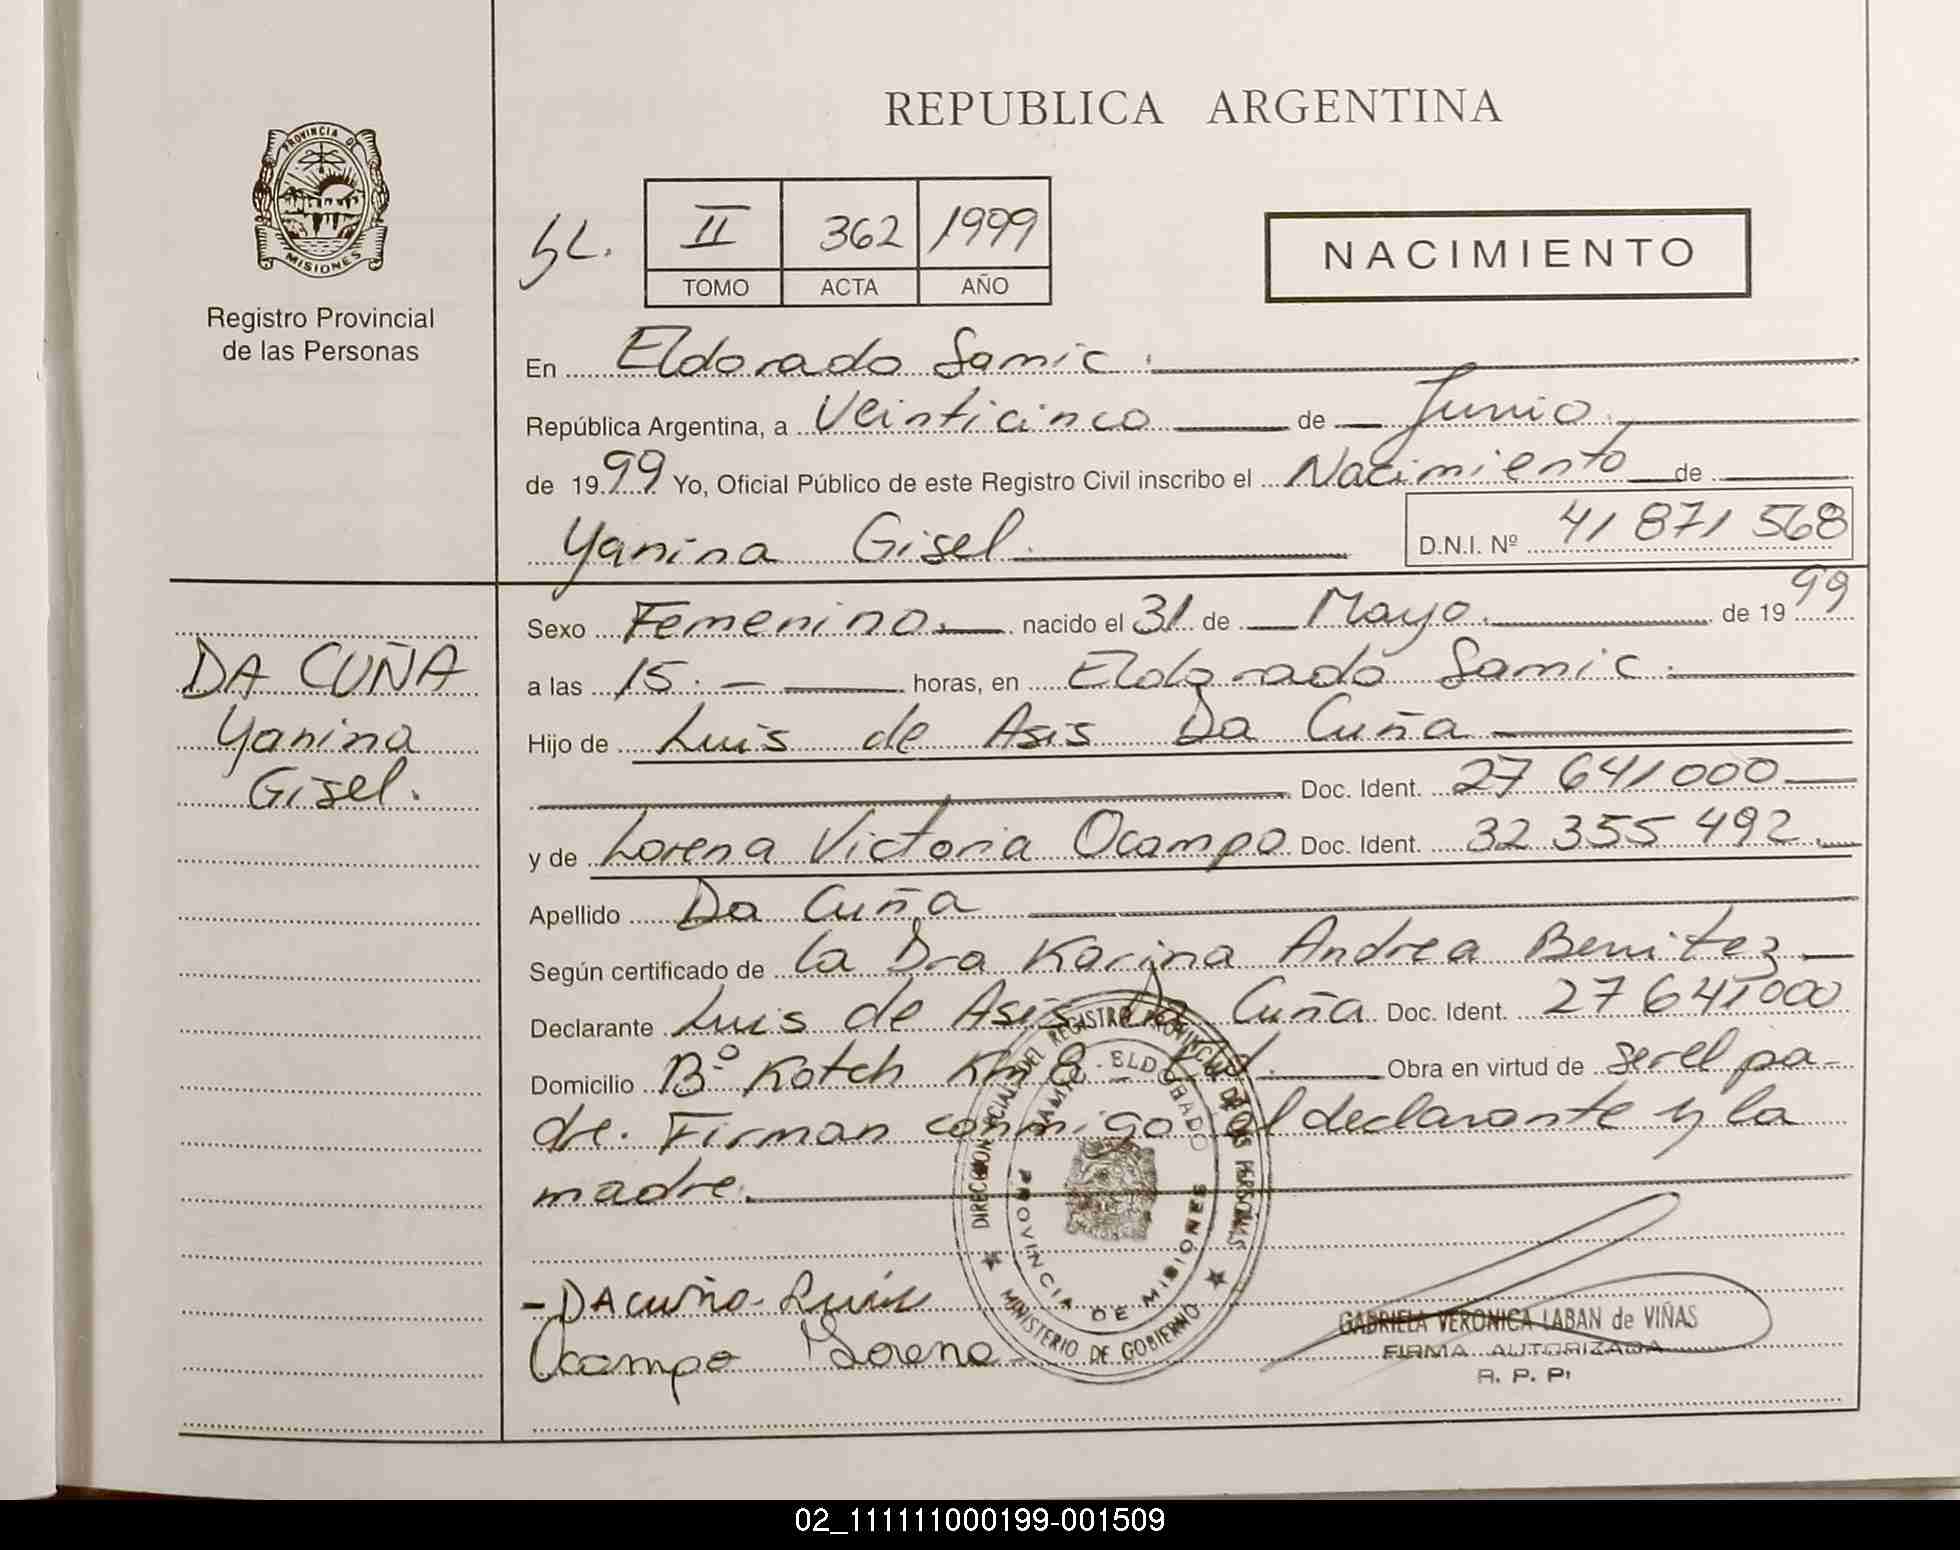 REPUBLICA ARGENTINA
PROVINCIA DE
MISIONES
Registro Provincial
de las Personas
II 362 1999
TOMO ACTA AÑO
NACIMIENTO
En Eldorado Samic.
República Argentina, a Veinticinco de Junio.
de 1999 Yo, Oficial Público de este Registro Civil inscribo el Nacimiento de
Yanina Gisel.
D.N.I. Nº 41 871 568
DA CUÑA
Yanina
Gisel.
Sexo Femenino. nacido el 31 de Mayo. de 1999
a las 15.- horas, en Eldorado Samic.
Hijo de Luis de Asis Da Cuña
Doc. Ident. 27 641000
y de Lorena Victoria Ocampo Doc. Ident. 32 355 492.
Apellido Da Cuña
Según certificado de la Dra Karina Andrea Benitez
Declarante Luis de Asis Da Cuña Doc. Ident. 27 641000
Domicilio Bº Kotch Km 8 - Eld. Obra en virtud de ser el pa-
dre. Firman conmigo el declarante y la
madre.
DIRECCION GRAL. DEL REGISTRO PROVINCIAL DE LAS PERSONAS
SAMIC - ELDORADO
PROVINCIA DE MISIONES
MINISTERIO DE GOBIERNO
- DA cuña Luis
Ocampo Lorena
GABRIELA VERONICA LABAN de VIÑAS
FIRMA AUTORIZADA
R. P. P.
02_111111000199-001509